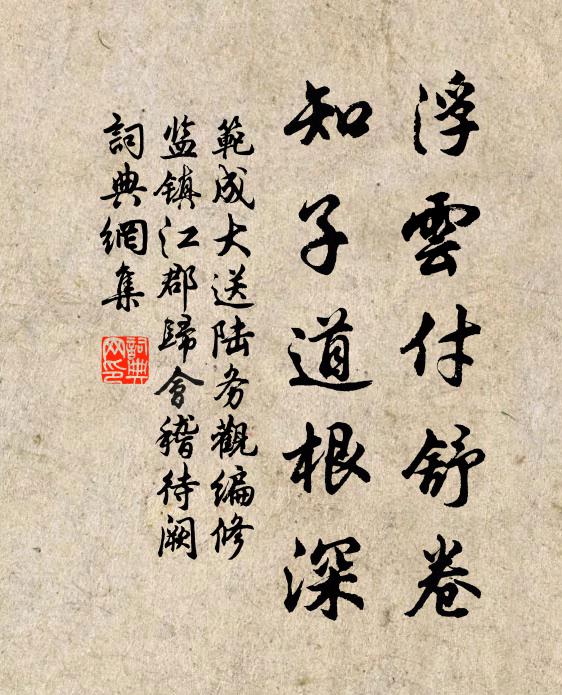 浮雲付舒卷
知子道根深
範成大送陆务觀编修
监镇江郡歸會稽待阙
詞典網集
詞典网印